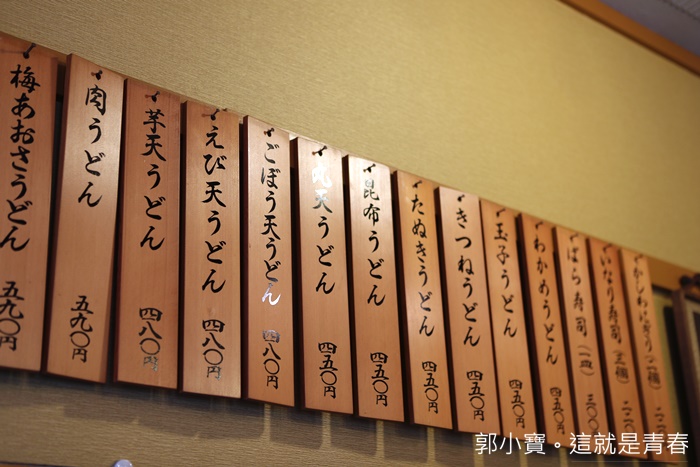 梅あおさうどん 五九〇円
肉うどん 五九〇円
芋天うどん 四八〇円
えび天うどん 四八〇円
ごぼう天うどん 四八〇円
丸天うどん 四五〇円
昆布うどん 四五〇円
たぬきうどん 四五〇円
きつねうどん 四五〇円
玉子うどん 四五〇円
わかめうどん 四五〇円
ばら寿司(一皿) 三〇〇
いなり寿司
かしわにぎり
郭小寶。這就是青春